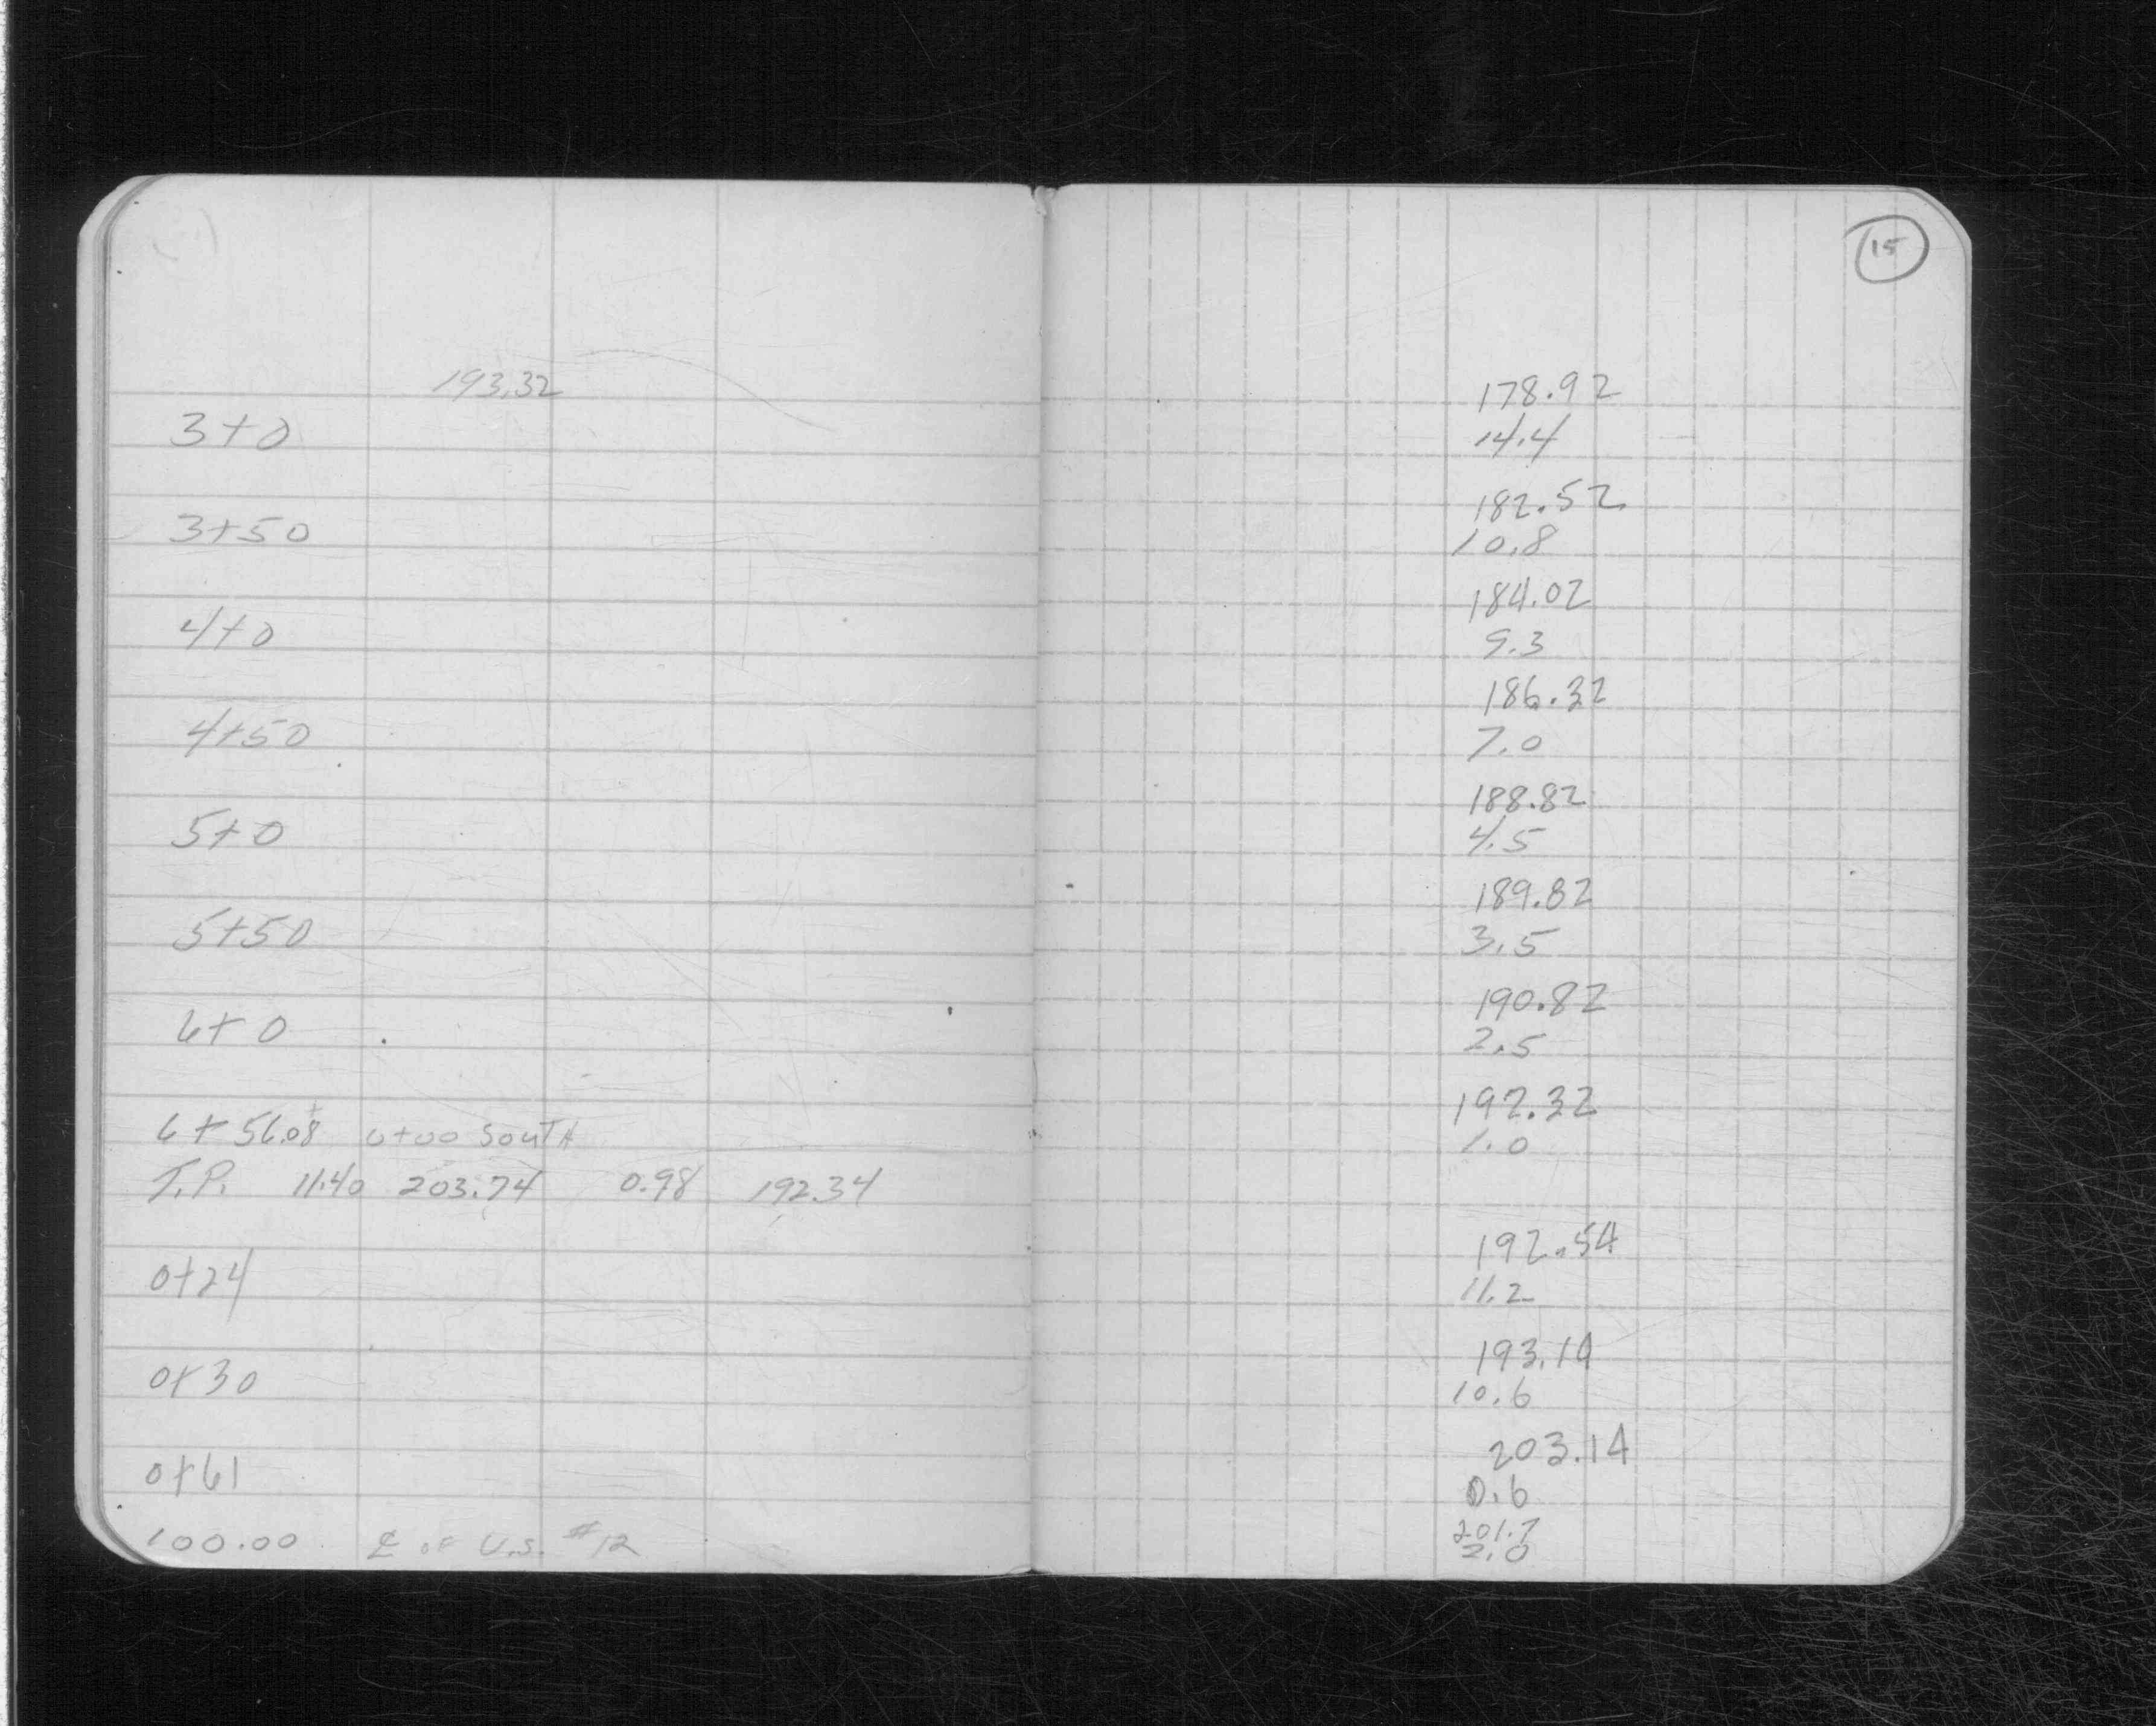 15
193.32 178.92
3+0 14.4
182.52
3+50 10.8
184.02
4+0 9.3
186.32
4+50 7.0
188.82
5+0 4.5
189.82
5+50 3.5
190.82
6+0 2.5
192.32
6+56.08± 0+00 SOUTH 1.0
T.P. 11.40 203.74 0.98 192.34
192.54
0+24 11.2
193.14
0+30 10.6
203.14
0+61 0.6
201.7
100.00 ℄ OF U.S. #12 2.0